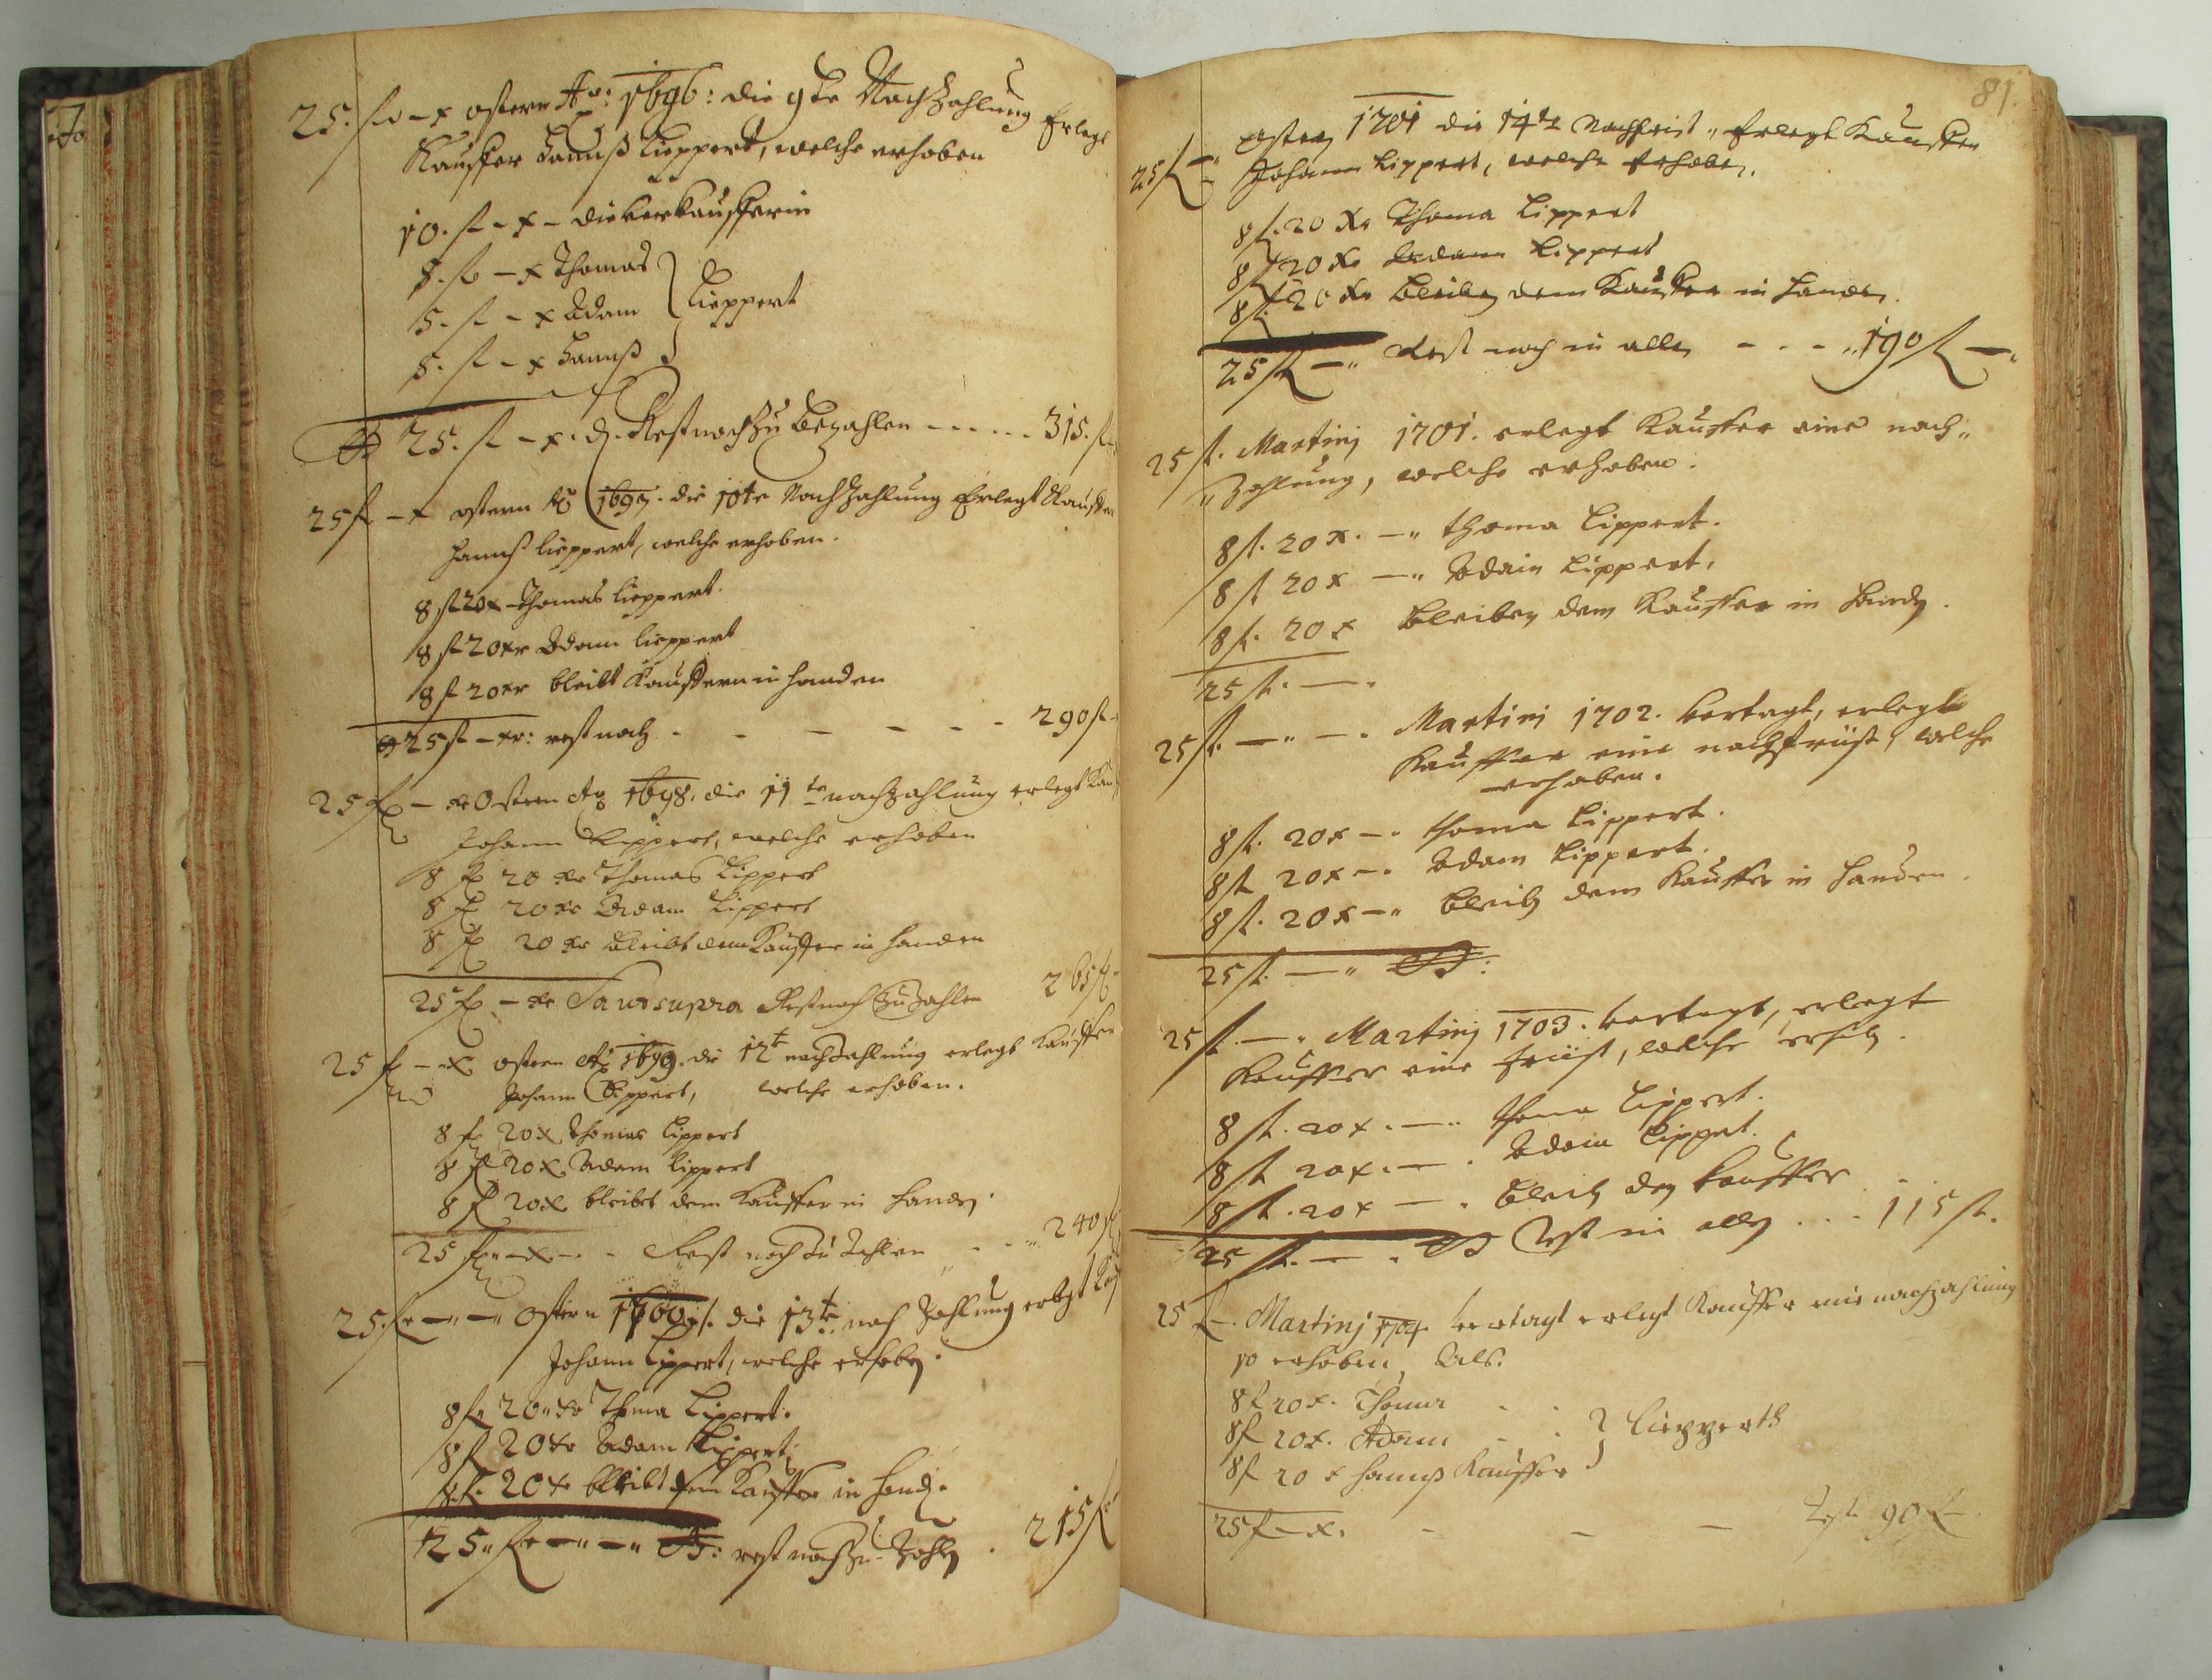 25. fl - x ostern Ao: 1696: die 9te NachZahlung Erlegt
Kauffer Hannß Lieppert, welche erhoben
10. fl - x - die Verkaufferin
5. fl - x Thomas
5. fl - x Adam } Lieppert
5. fl - x Hannß
25. fl - x. Rest noch Zu bezahlen - - - - - - 315. fl
25 fl - x ostern Ao 1697. die 10te NachZahlung Erlegt Kauffer
Hannß lieppert, welche erhoben.
8 fl 20 x - Thomas lieppert.
8 fl 20 xr Adam lieppert
8 fl 20 xr bleibt Kauffern in handen
25 fl - xr: rest noch - - - - - 290 fl -
25 fl - xr Ostern Ao 1698. die 11te nachzahlung erlegt
Johann Lippert, welche erhoben
8 fl 20 xr Thomas Lippert
8 fl 20 xr Adam Lippert
8 fl 20 xr bleibt dem Kauffer in handen
25 fl - xr Sa ut supra Rest noch Zu Zahlen 265 fl
25 fl - x ostern Ao 1699. die 12t nachZahlung erlegt Kauffer
Johann Lippert, welche erhoben.
8 fl 20 x Thomas Lippert
8 fl 20 x Adam Lippert
8 fl 20 x bleibet dem Kauffer in handen.
25 fl - x - - Rest noch Zu Zahlen - - 240 fl
25 fl - - ostern 1700. die 13te nach Zahlung erlegt
Johann Lippert, welche erhoben.
8 fl 20 xr Thoma Lippert.
8 fl 20 xr Adam Lippert.
8 fl. 20 xr bleibt dem Kauffer in Handen.
25 fl - - rest noch Zu Zahlen . 215 fl
81.
Ostern 1701 die 14te Nachfrist, Erlegt Kauffer
25 fl - Johann Lippert, welche Erhoben.
8 fl. 20 Xr Thoma Lippert
8 fl 20 Xr Adam Lippert
8 fl. 20 Xr bleiben dem Kauffer in handen.
25 fl - Rest noch in allen - - - 190 fl -
25 fl. Martinj 1701. erlegt Kauffer eine nach„
„Zahlung, welche erhoben.
8 fl. 20 x. - „ Thoma Lippert.
8 fl 20 x - „ Adam Lippert.
8 fl. 20 x bleiben dem Kauffer in handen.
25 fl. - .
25 fl. - „ - . Martinj 1702. vertagt, erlegt
Kauffer eine nachfrist, welche
erhoben.
8 fl. 20 x - . Thoma Lippert.
8 fl 20 x - . Adam Lippert.
8 fl. 20 x - „ bleiben dem Kauffer in handen.
25 fl. - „
25 fl. - . Martinj 1703. vertagt, erlegt
Kauffer eine frist, welche erhoben.
8 fl. 20 x. - „ Thoma Lippert.
8 fl 20 x. - . Adam Lippert.
8 fl. 20 x - . bleiben dem Kauffer
25 fl. - . Rest in allen . . . 115 fl.
25 fl - . Martinj 1704. vertagt erlegt Kauffer eine nachzahlung
so erhoben, Als:
8 fl 20 x. Thoma
8 fl 20 x. Adam } Liepperth
8 fl 20 x Hannß Kauffer
25 fl - x. - - - Rest 90 fl -